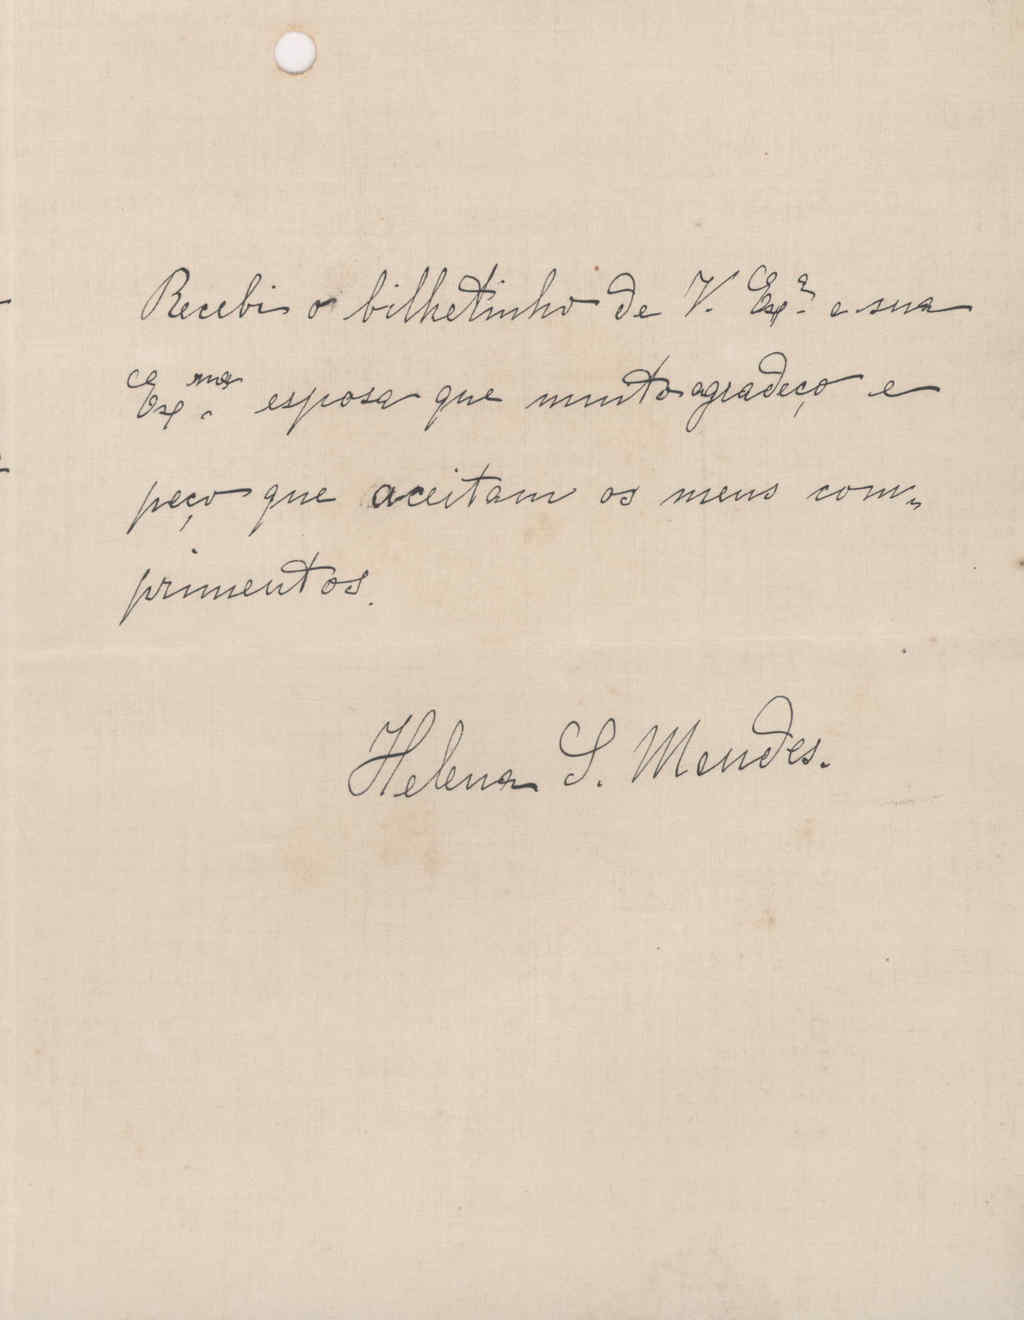 Recebi o bilhetinho de V. Exª. e sua
Exma. esposa que muito agradeço e
peço que aceitam os meus com-
primentos.
Helena S. Mendes.